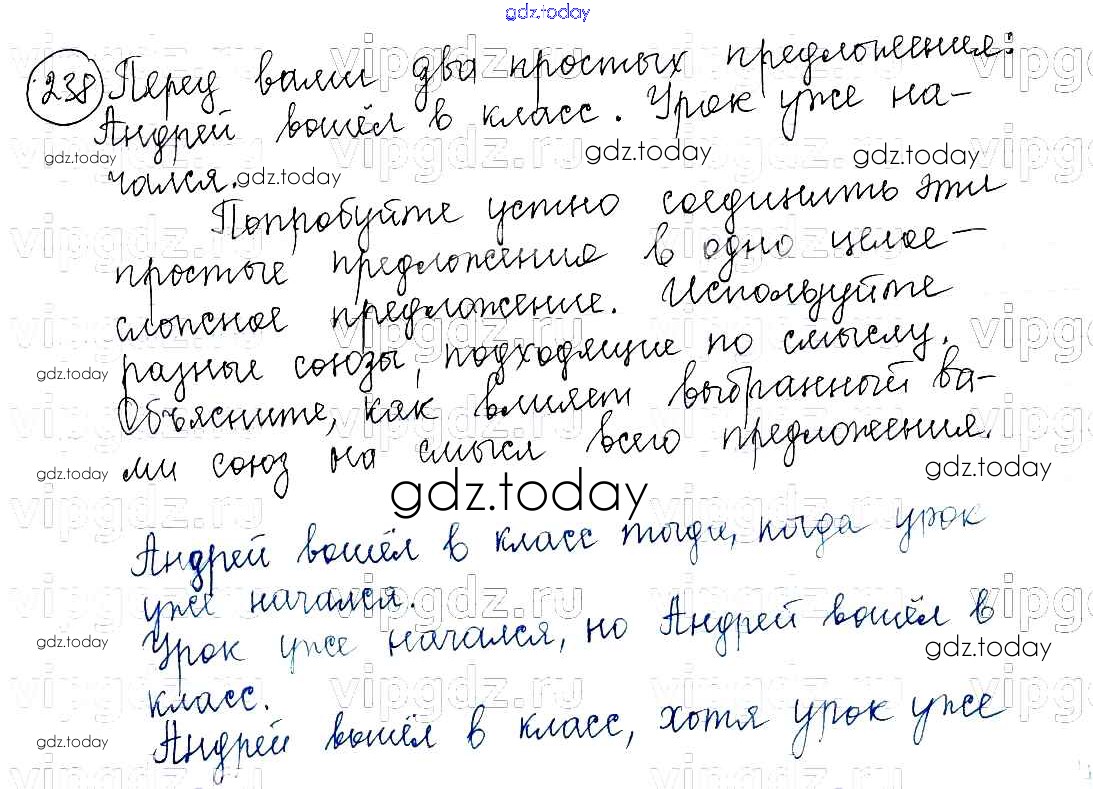 gdz.today
238 Перед вами два простых предложения:
Андрей вошёл в класс. Урок уже на-
чался.
Попробуйте устно соединить эти
простые предложения в одно целое —
сложное предложение. Используйте
разные союзы, подходящие по смыслу.
Объясните, как влияет выбранный ва-
ми союз на смысл всего предложения.
gdz.today
Андрей вошёл в класс тогда, когда урок
уже начался.
Урок уже начался, но Андрей вошёл в
класс.
Андрей вошёл в класс, хотя урок уже